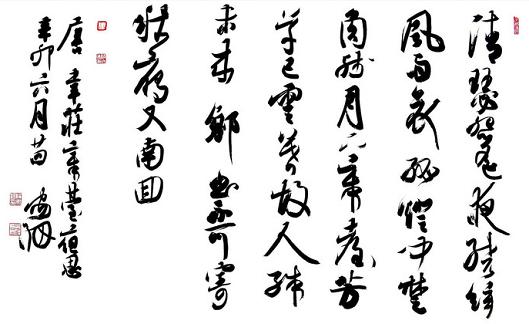 清瑟怨遥夜繞絃
風雨哀孤燈聞楚
角殘月下章臺芳
草已雲暮故人殊
未來鄉書不可寄
秋雁又南回
唐韋莊章臺夜思
辛卯六月